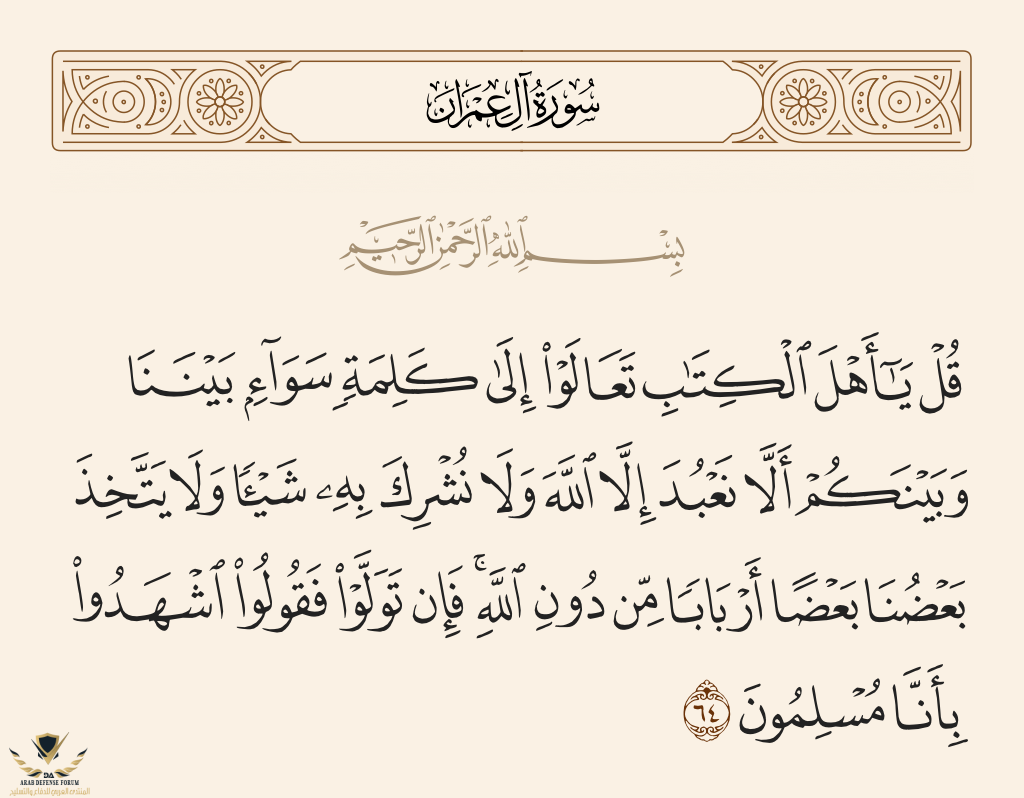 سُورَةُ آلِ عِمْرَان
بِسْمِ ٱللَّهِ ٱلرَّحْمَٰنِ ٱلرَّحِيمِ
قُلْ يَـٰٓأَهْلَ ٱلْكِتَـٰبِ تَعَالَوْا۟ إِلَىٰ كَلِمَةٍ سَوَآءٍۭ بَيْنَنَا
وَبَيْنَكُمْ أَلَّا نَعْبُدَ إِلَّا ٱللَّهَ وَلَا نُشْرِكَ بِهِۦ شَيْـًٔا وَلَا يَتَّخِذَ
بَعْضُنَا بَعْضًا أَرْبَابًا مِّن دُونِ ٱللَّهِ ۚ فَإِن تَوَلَّوْا۟ فَقُولُوا۟ ٱشْهَدُوا۟
بِأَنَّا مُسْلِمُونَ ٦٤
ARAB DEFENSE FORUM
المنتدى العربي للدفاع والتسليح